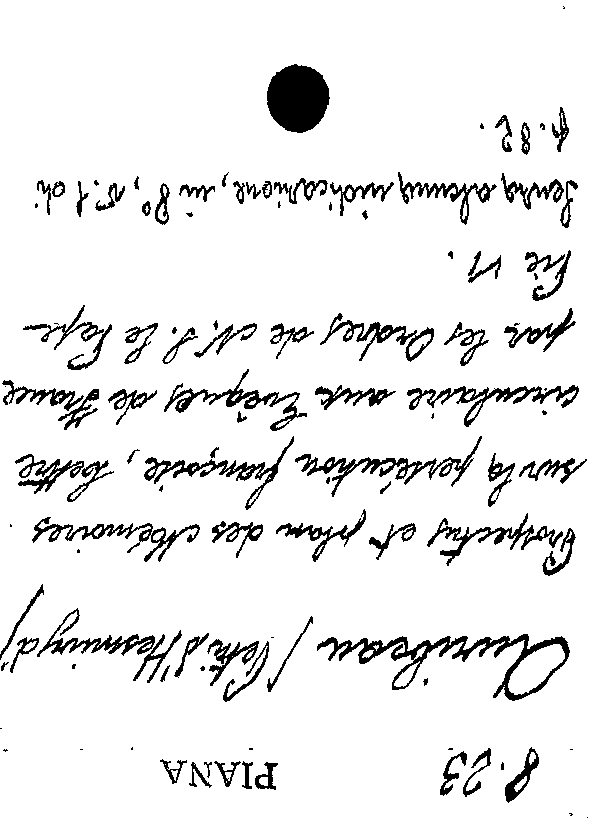 8.23 PIANA
Auribeau (Petit d'Hesmivy d')
Prospectus et plan des Mémoires
sur la persécution françoise, Lettre
circulaire aux Evêques de France
par les Ordres de N. S. Le Pape
Pie VI.
Senza alcuna indicazione, in 8°, v. 1 di
p. 82.